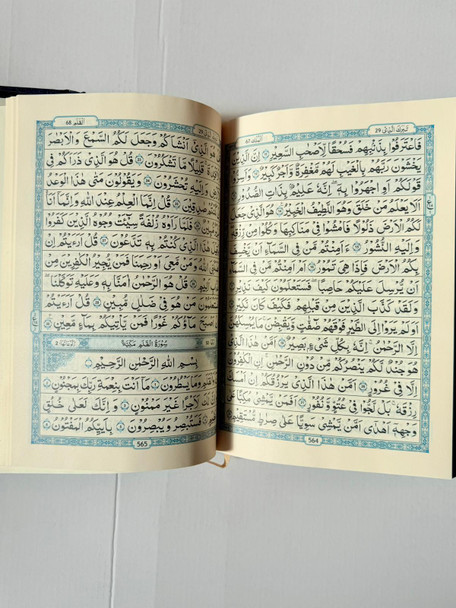 تبٰرك الذی ٢٩
الملك ٦٧
فَاعْتَرَفُوْا بِذَنْۢبِهِمْ فَسُحْقًا لِّاَصْحٰبِ السَّعِيْرِ اِنَّ الَّذِيْنَ
يَخْشَوْنَ رَبَّهُمْ بِالْغَيْبِ لَهُمْ مَّغْفِرَةٌ وَّاَجْرٌ كَبِيْرٌ
قَوْلَكُمْ اَوِ اجْهَرُوْا بِهٖ اِنَّهٗ عَلِيْمٌۢ بِذَاتِ الصُّدُوْرِ
اَلَا يَعْلَمُ مَنْ خَلَقَ وَهُوَ اللَّطِيْفُ الْخَبِيْرُ هُوَ الَّذِيْ جَعَلَ
لَكُمُ الْاَرْضَ ذَلُوْلًا فَامْشُوْا فِيْ مَنَاكِبِهَا وَكُلُوْا مِنْ رِّزْقِهٖ
وَاِلَيْهِ النُّشُوْرُ ءَاَمِنْتُمْ مَّنْ فِي السَّمَآءِ اَنْ
بِكُمُ الْاَرْضَ فَاِذَا هِيَ تَمُوْرُ اَمْ اَمِنْتُمْ مَّنْ فِي السَّمَآءِ
اَنْ يُّرْسِلَ عَلَيْكُمْ حَاصِبًا فَسَتَعْلَمُوْنَ كَيْفَ
وَلَقَدْ كَذَّبَ الَّذِيْنَ مِنْ قَبْلِهِمْ فَكَيْفَ كَانَ نَكِيْرِ
اَوَلَمْ يَرَوْا اِلَى الطَّيْرِ فَوْقَهُمْ صٰٓفّٰتٍ وَّيَقْبِضْنَ مَا
اِلَّا الرَّحْمٰنُ اِنَّهٗ بِكُلِّ شَيْءٍۢ بَصِيْرٌ اَمَّنْ هٰذَا الَّذِيْ
هُوَ جُنْدٌ لَّكُمْ يَنْصُرُكُمْ مِّنْ دُوْنِ الرَّحْمٰنِ اِنِ الْكٰفِرُوْنَ
اِلَّا فِيْ غُرُوْرٍ اَمَّنْ هٰذَا الَّذِيْ يَرْزُقُكُمْ اِنْ اَمْسَكَ
رِزْقَهٗ بَلْ لَّجُّوْا فِيْ عُتُوٍّ وَّنُفُوْرٍ اَفَمَنْ يَّمْشِيْ مُكِبًّا عَلٰى
وَجْهِهٖٓ اَهْدٰٓى اَمَّنْ يَّمْشِيْ سَوِيًّا عَلٰى صِرَاطٍ مُّسْتَقِيْمٍ
564
القلم ٦٨
هُوَ الَّذِيْٓ اَنْشَاَكُمْ وَجَعَلَ لَكُمُ السَّمْعَ وَالْاَبْصَارَ
قَلِيْلًا مَّا تَشْكُرُوْنَ قُلْ هُوَ الَّذِيْ ذَرَاَكُمْ فِي
وَاِلَيْهِ تُحْشَرُوْنَ وَيَقُوْلُوْنَ مَتٰى هٰذَا الْوَعْدُ
صٰدِقِيْنَ قُلْ اِنَّمَا الْعِلْمُ عِنْدَ اللّٰهِ وَاِنَّمَآ اَنَا
فَلَمَّا رَاَوْهُ زُلْفَةً سِيْٓئَتْ وُجُوْهُ الَّذِيْنَ كَفَرُوْا
هٰذَا الَّذِيْ كُنْتُمْ بِهٖ تَدَّعُوْنَ قُلْ اَرَءَيْتُمْ اِنْ
اللّٰهُ وَمَنْ مَّعِيَ اَوْ رَحِمَنَا فَمَنْ يُّجِيْرُ الْكٰفِرِيْنَ مِنْ
قُلْ هُوَ الرَّحْمٰنُ اٰمَنَّا بِهٖ وَعَلَيْهِ تَوَكَّلْنَا
مَنْ هُوَ فِيْ ضَلٰلٍ مُّبِيْنٍ قُلْ اَرَءَيْتُمْ
اَصْبَحَ مَآؤُكُمْ غَوْرًا فَمَنْ يَّاْتِيْكُمْ بِمَآءٍ مَّعِيْنٍ
سُوْرَةُ الْقَلَمِ مَكِّيَّةٌ
بِسْمِ اللّٰهِ الرَّحْمٰنِ الرَّحِيْمِ
وَمَا يَسْطُرُوْنَ مَآ اَنْتَ بِنِعْمَةِ رَبِّكَ بِمَجْنُوْنٍ
لَكَ لَاَجْرًا غَيْرَ مَمْنُوْنٍ وَاِنَّكَ لَعَلٰى خُلُقٍ
فَسَتُبْصِرُ وَيُبْصِرُوْنَ بِاَيِّيكُمُ الْمَفْتُوْنُ
565